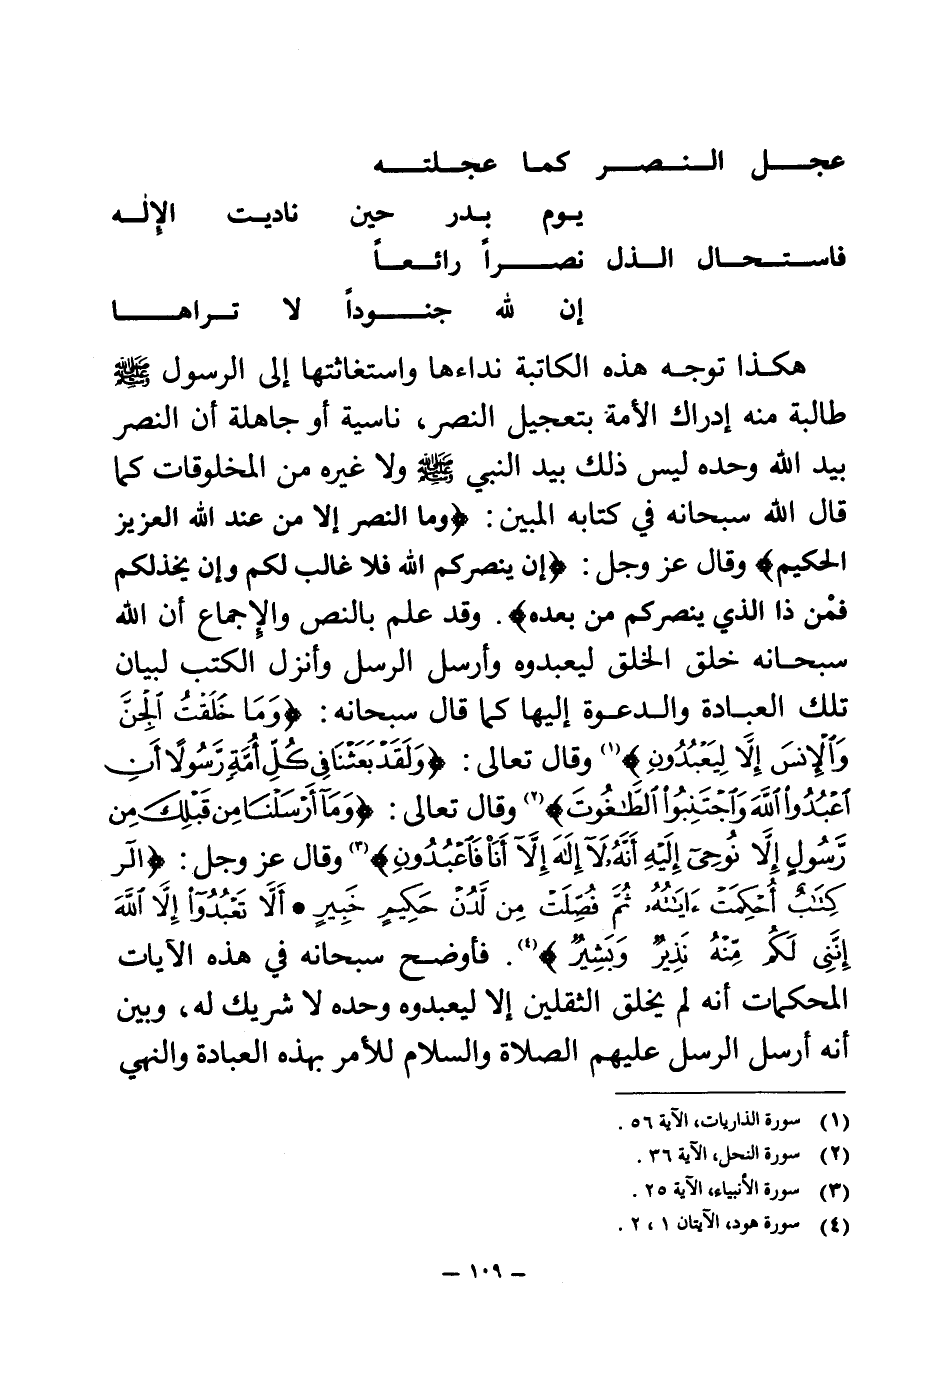 عجل النصر كما عجلته
يوم بدر حين ناديت الإلٰه
فاستحال الذل نصراً رائعاً
إن لله جنوداً لا تراها
هكذا توجه هذه الكاتبة نداءها واستغاثتها إلى الرسول ﷺ
طالبة منه إدراك الأمة بتعجيل النصر، ناسية أو جاهلة أن النصر
بيد الله وحده ليس ذلك بيد النبي ﷺ ولا غيره من المخلوقات كما
قال الله سبحانه في كتابه المبين: ﴿وما النصر إلا من عند الله العزيز
الحكيم﴾ وقال عز وجل: ﴿إن ينصركم الله فلا غالب لكم وإن يخذلكم
فمْن ذا الذي ينصركم من بعده﴾. وقد علم بالنص والإجماع أن الله
سبحانه خلق الخلق ليعبدوه وأرسل الرسل وأنزل الكتب لبيان
تلك العبادة والدعوة إليها كما قال سبحانه: ﴿وَمَا خَلَقْتُ ٱلْجِنَّ
وَٱلْإِنسَ إِلَّا لِيَعْبُدُونِ﴾(١) وقال تعالى: ﴿وَلَقَدْ بَعَثْنَا فِي كُلِّ أُمَّةٍ رَّسُولًا أَنِ
ٱعْبُدُوا۟ ٱللَّهَ وَٱجْتَنِبُوا۟ ٱلطَّـٰغُوتَ﴾(٢) وقال تعالى: ﴿وَمَآ أَرْسَلْنَا مِن قَبْلِكَ مِن
رَّسُولٍ إِلَّا نُوحِىٓ إِلَيْهِ أَنَّهُۥ لَآ إِلَـٰهَ إِلَّآ أَنَا۠ فَٱعْبُدُونِ﴾(٣) وقال عز وجل: ﴿الٓر
كِتَـٰبٌ أُحْكِمَتْ ءَايَـٰتُهُۥ ثُمَّ فُصِّلَتْ مِن لَّدُنْ حَكِيمٍ خَبِيرٍ • أَلَّا تَعْبُدُوٓا۟ إِلَّا ٱللَّهَ
إِنَّنِى لَكُم مِّنْهُ نَذِيرٌ وَبَشِيرٌ﴾(٤). فأوضح سبحانه في هذه الآيات
المحكمات أنه لم يخلق الثقلين إلا ليعبدوه وحده لا شريك له، وبين
أنه أرسل الرسل عليهم الصلاة والسلام للأمر بهذه العبادة والنهي
(١) سورة الذاريات، الآية ٥٦.
(٢) سورة النحل، الآية ٣٦.
(٣) سورة الأنبياء، الآية ٢٥.
(٤) سورة هود، الآيتان ١، ٢.
– ١٠٩ –